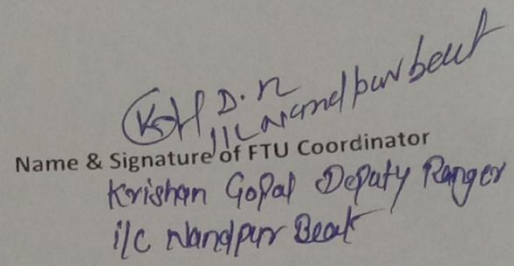 D.R
I/C Nandpur beat
Name & Signature of FTU Coordinator
Krishan Gopal Deputy Ranger
i/c Nandpur Beat